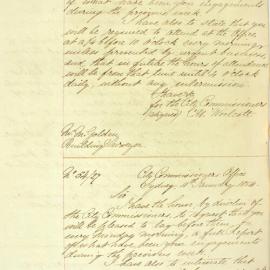 of what have been your engagements
during the previous week.
I have also to state that you
will be required to attend at the Office
at a ¼ before 10 o'clock every morning
unless prevented by urgent business
and, that in future the hours of attendance
will be from that hour until 4 o'clock
daily, without any intermission.
I have &c
for the City Commissioners
(signed) C. H. Woolcott
Mr Jas. Golden
Building Surveyor
City Commissioners Office
Sydney 11 January 1854
Sir,
I have the honor by direction of
the City Commissioners to request that you
will be pleased to lay before them,
every Monday morning, a full report
of what have been your engagements
during the previous week.
I have also to intimate that